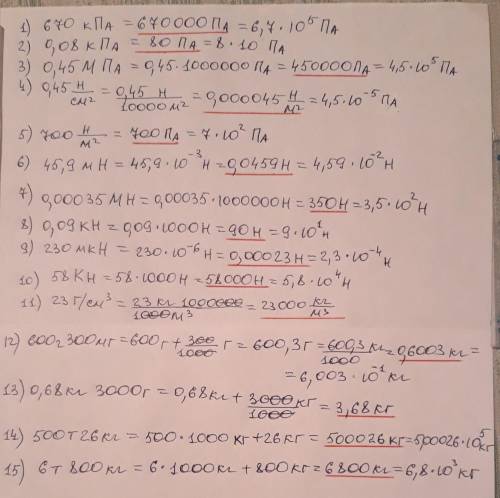 1) 670 кПа = 670000 Па = 6,7 · 10⁵ Па
2) 0,08 кПа = 80 Па = 8 · 10 Па
3) 0,45 М Па = 0,45 · 1000000 Па = 450000 Па = 4,5 · 10⁵ Па
4) 0,45 Н/см² = 0,45 Н/10000 м² = 0,000045 Н/м² = 4,5 · 10⁻⁵ Па
5) 700 Н/м² = 700 Па = 7 · 10² Па
6) 45,9 мН = 45,9 · 10⁻³ Н = 0,0459 Н = 4,59 · 10⁻² Н
7) 0,00035 МН = 0,00035 · 1000000 Н = 350 Н = 3,5 · 10² Н
8) 0,09 кН = 0,09 · 1000 Н = 90 Н = 9 · 10¹ Н
9) 230 мкН = 230 · 10⁻⁶ Н = 0,00023 Н = 2,3 · 10⁻⁴ Н
10) 58 КН = 58 · 1000 Н = 58000 Н = 5,8 · 10⁴ Н
11) 23 г/см³ = 23 кг 1000000/1000 м³ = 23000 кг/м³
12) 600г 300мг = 600г + 300/1000 г = 600,3г = 600,3/1000 кг = 0,6003 кг =
= 6,003 · 10⁻¹ кг
13) 0,68 кг 3000 г = 0,68 кг + 3000/1000 кг = 3,68 кг
14) 500т 26 кг = 500 · 1000 кг + 26 кг = 500026 кг = 5,00026 · 10⁵ кг
15) 6 т 800 кг = 6 · 1000 кг + 800 кг = 6800 кг = 6,8 · 10³ кг